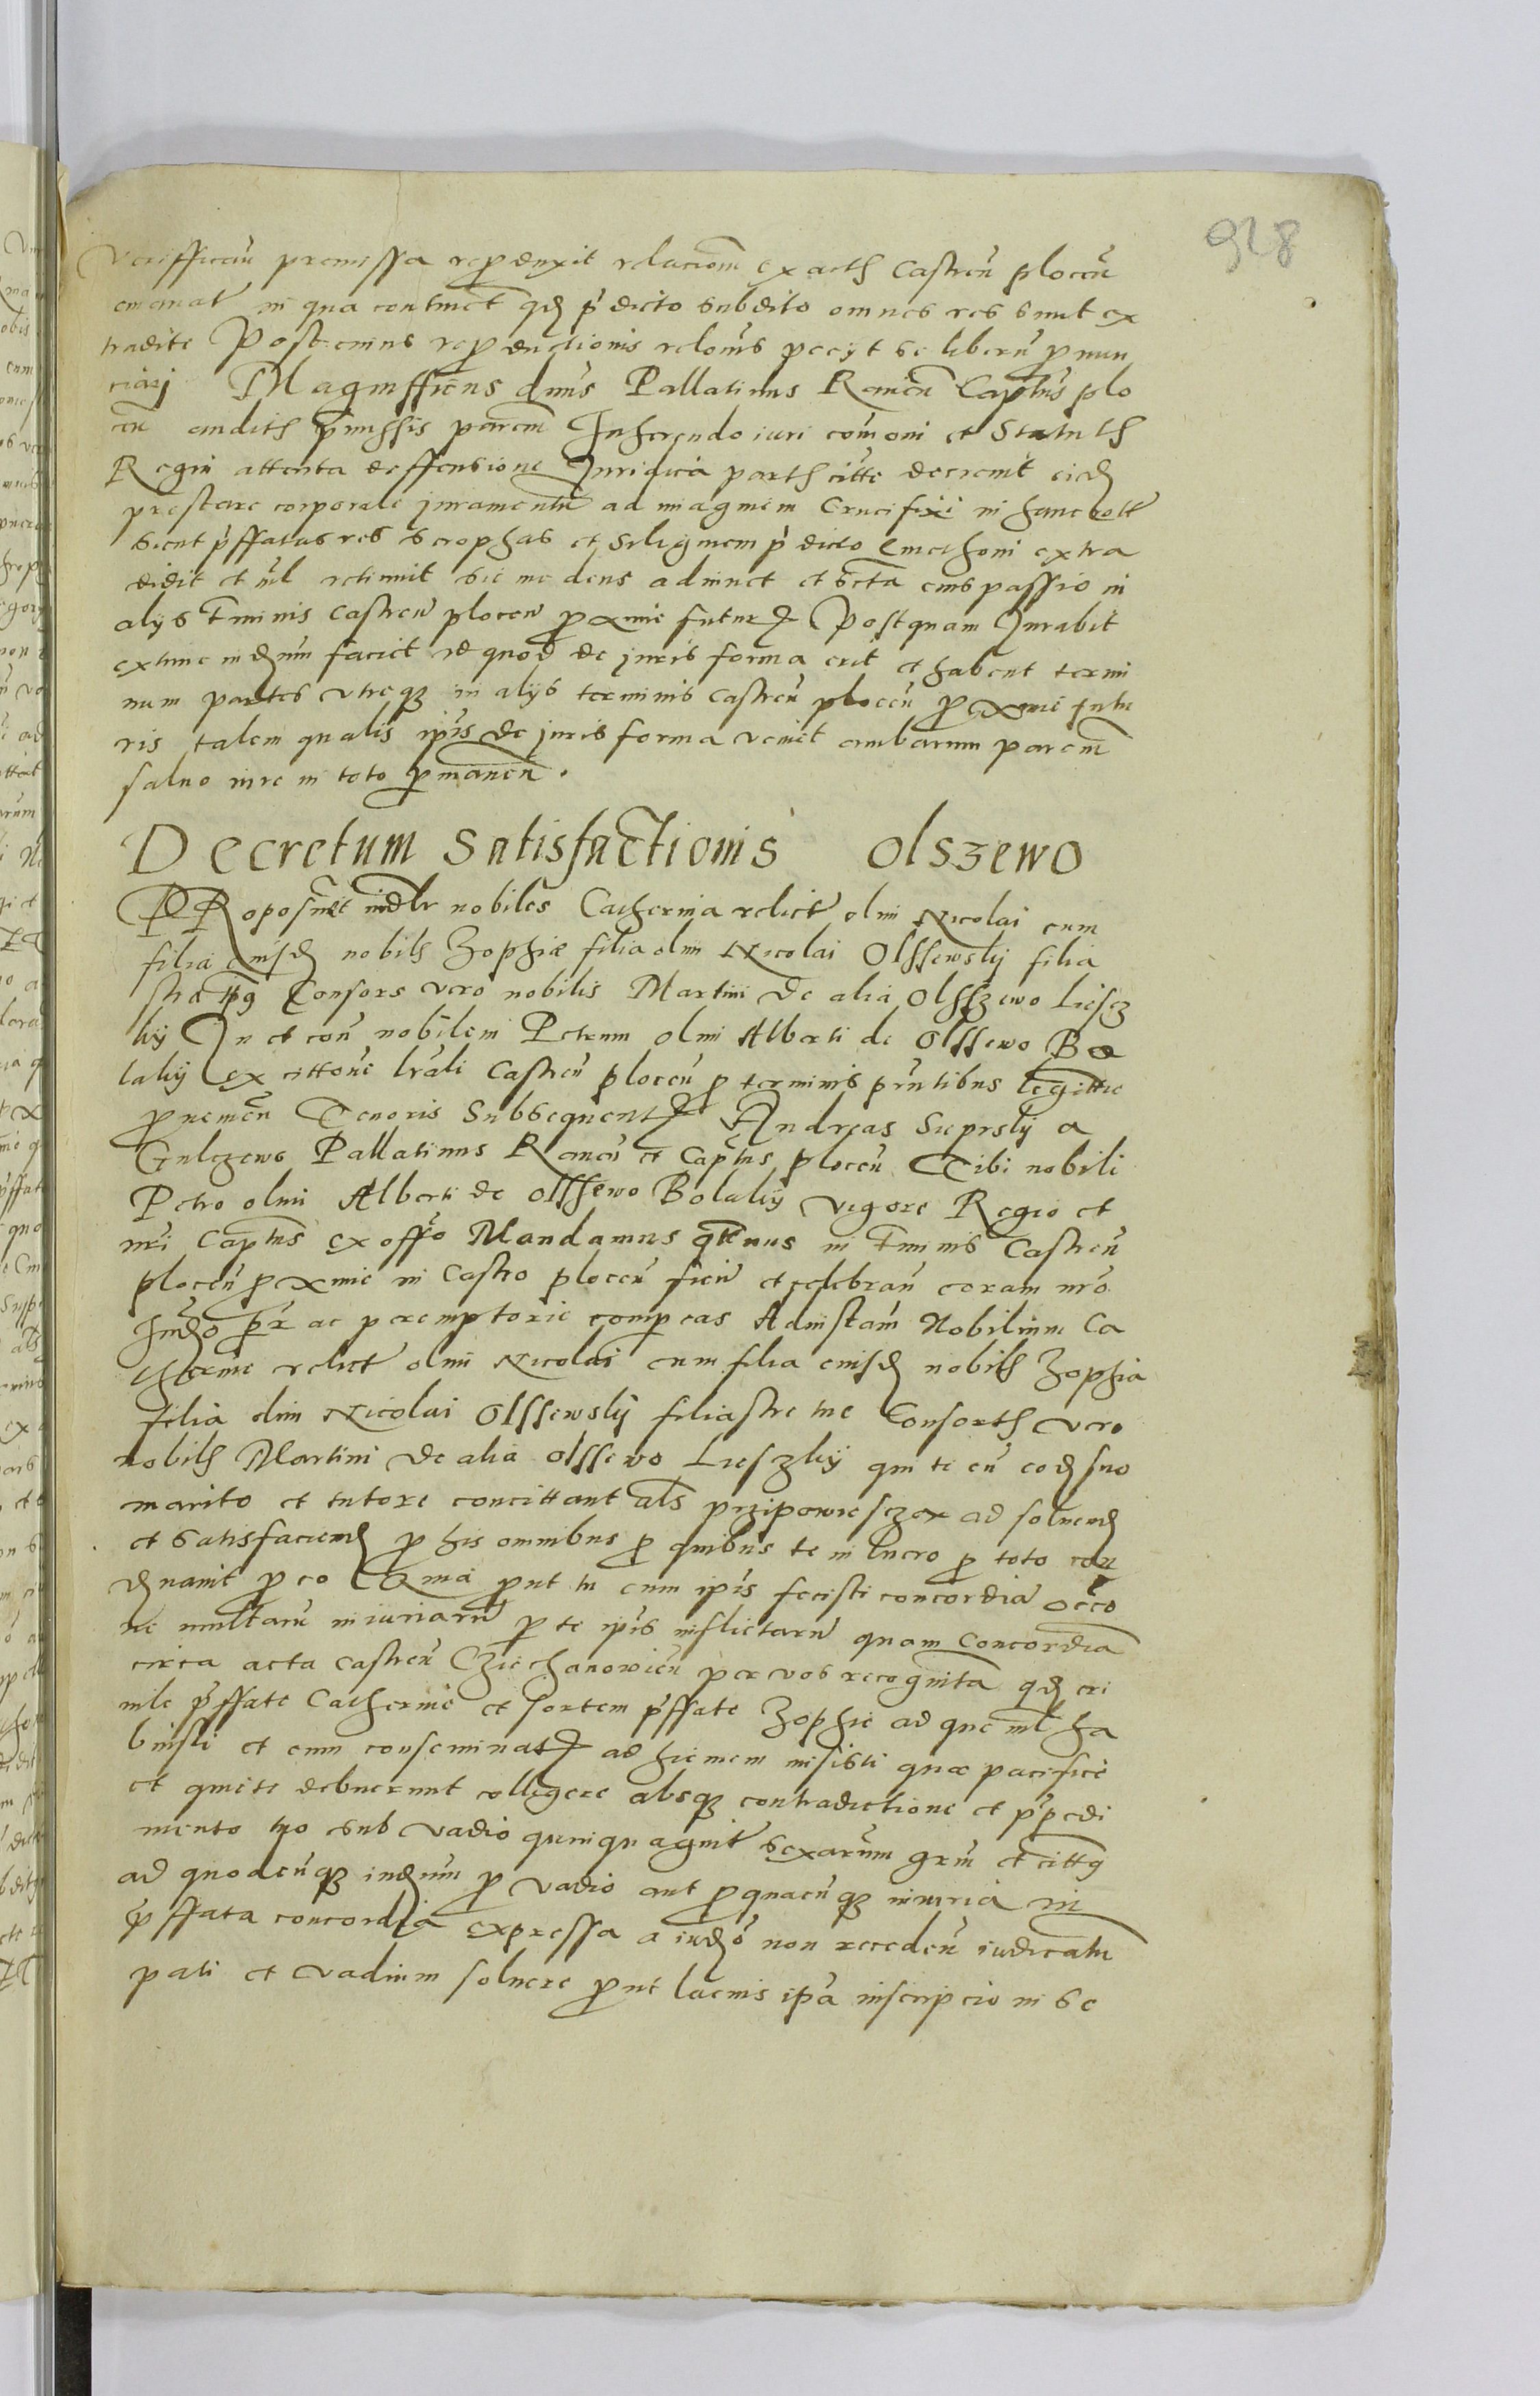 928
Veriffican premissa reproduxit relacionem ex actis Castren plocen
emanat in qua continet qd p dicto subdito omnes res sunt ex
tradite Post cuius reproductionis relonis pecyt se liberu pronun
ciarj Magnifficus dnus Pallatinus Raucen Captus plo
cen auditis pmissis parcm Inherendo iuri comoni et Statutis
Regni attenta deffensione Juridica partis citte decrevit eid
prestare corporale juramentu ad imaginem Crucifixi in hanc rott
sicut pffatus res scrophas et siliginem p dicto Cmethoni extra
didit et nil retinuit sic me deus adiuvet et scta eius passio in
alys tminis Castren plocen proxime futur Postquam Jurabit
extunc iudium faciet id quod de juris forma erit et habent termi
num partes utreq in alys terminis Castren plocen proxime futu
ris talem qualis ipis de juris forma venit ambarum parcm
salvo iure in toto pmanen.
Decretum Satisfactionis Olszewo
PRoposuet indlr nobiles Catherina relict olim Nicolai cum
filia eiusd nobilis Zophia filia olim Nicolai Olssewsky filia
stra Consors vero nobilis Martini de alia Olsszewo Liesz
ky In et con nobilem Petrum olim Alberti de Olssewo Bo
laky ex cittone lrali Castren plocen p terminis pntibus legittie
pnemen Tenoris Subsequent Andreas Sieprsky a
Gulczewo Pallatinus Rauen et Captus plocen Tibi nobili
Petro olim Alberti de Olssewo Bolaky vigore Regio et
nri Captus ex offo Mandamus qtenus in tminis Castren
plocen proxime in Castro plocen fien et celebran coram nro
Judo pr ac peremptorie compeas Ad instam Nobilium Ca
therine relict olim Nicolai cum filia eiusd nobilis Zophia
filia olim Nicolai Olssewsky filiastre tue Consortis vero
nobilis Martini de alia Olssewo Lieszky qui te cu eod suo
marito et tutore concittant als przipowiescza ad solvend
et satisfaciend p his omnibus p quibus te in lucro p toto con
dnavit p eo Qma pnt tu cum ipis fecisti concordia occo
ne multaru iniuriaru p te ipis inflictaru quam Concordia
circa acta castren Cziechanovien per vos recognita qd eri
nile pffate Catherine et sortem pffate Zophie ad que nil ha
buisti et eum conseminat ad hiemem misisti que pacifice
et quiete debuerunt colligere absq contradictione et ppedi
mento tuo sub vadio quinquaginta sexarum grm et citt
ad quodcunq iudium p vadio aut pquacunq iniuria in
pffata concordia expressa a iudo non receden iudicatu
pati et vadium solvere pnt lacius ipa inscripcio in se